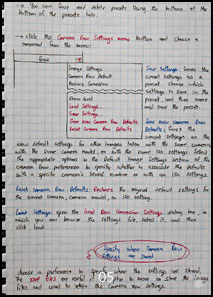 → You can save and delete presets using the buttons at the
bottom of the presets tab.
→ click the Camera Raw Settings menu button and choose a
command from the menu:
Image Settings
Camera Raw Defaults
Previous Conversion
Show Grid
Load Settings...
Save Settings...
Save New Camera Raw Defaults
Reset Camera Raw Defaults
Save Settings: Saves the
current settings as a
preset. Choose which
settings to save in the
preset, and then name
and save the preset.
Save New Camera Raw
Defaults: Saves the
current settings as the
new default settings for other images taken with the same camera,
with the same camera model, or with the same ISO setting. Select
the appropriate options in the Default Image Settings section of the
Camera Raw preferences to specify whether to associate the defaults
with a specific camera's serial number or with an ISO setting.
Reset Camera Raw Defaults: Restores the original default settings for
the current camera, camera model, or ISO setting.
Load Settings: opens the Load Raw Conversion Settings dialog box, in
which you can browse to the settings file, select it, and then
click load.
Specify where Camera Raw
settings are stored
choose a preference to specify where the settings are stored.
The XMP files are useful if you plan to move or store the image
files and want to retain the camera raw settings.
05